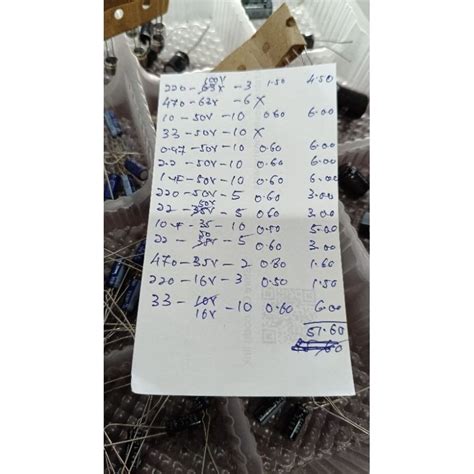 100V
220 - 63V - 3 1.50 4.50
470 - 63V - 6 X
10 - 50V - 10 0.60 6.00
33 - 50V - 10 X
0.47 - 50V - 10 0.60 6.00
2.2 - 50V - 10 0.60 6.00
1 - 50V - 10 0.60 6.00
220 - 50V - 5 0.60 3.00
50V
22 - 35V - 5 0.60 3.00
10 - 35 - 10 0.50 5.00
50
22 - 35V - 5 0.60 3.00
470 - 35V - 2 0.80 1.60
220 - 16V - 3 0.50 1.50
33 - 10V - 10 0.60 6.00
16V
51.60